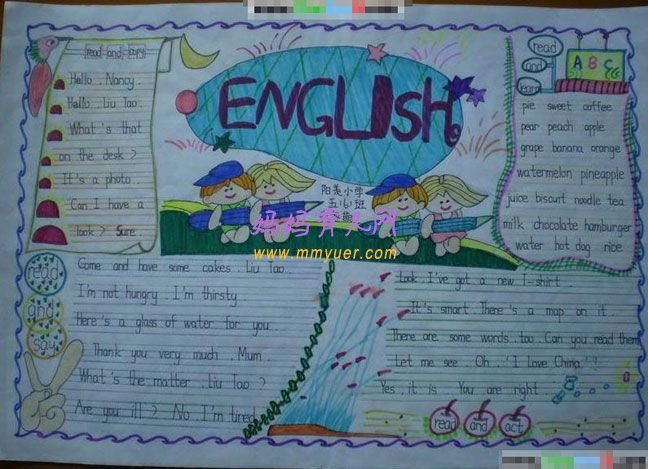 read and copy
Hello . Nancy .
Hello . Liu Tao .
What's that
on the desk ?
It's a photo .
Can I have a
look ? Sure .
ENGLISH
read
and
learn
A B C
pie sweet coffee
pear peach apple
grape banana orange
watermelon pineapple
juice biscurt noodle tea
milk chocolate hamburger
water hot dog rice
小学
五(6)班
妈妈育儿网
www.mmyuer.com
read
and
say
Come and have some cakes . Liu Tao .
I'm not hungry . I'm thirsty .
Here's a glass of water for you .
Thank you very much . Mum .
What's the matter . Liu Tao ?
Are you ill ? No . I'm tired .
Look . I've got a new T-shirt .
It's smart . There's a map on it .
There are some words . too . Can you read them
Let me see . Oh . 'I love China.' !
Yes , it is . You are right .
read and act